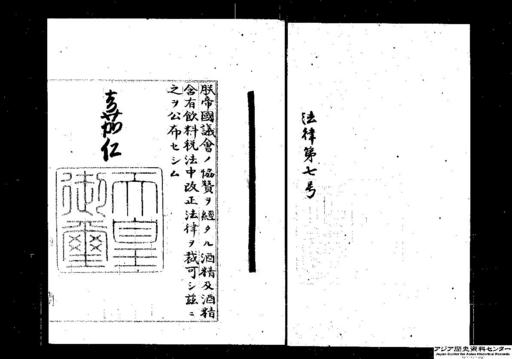 法律第七号
朕帝國議會ノ協賛ヲ經タル酒精及酒精
含有飲料税法中改正法律ヲ裁可シ茲ニ
之ヲ公布セシム
嘉仁
天皇
御璽
アジア歴史資料センター
Japan Center for Asian Historical Records